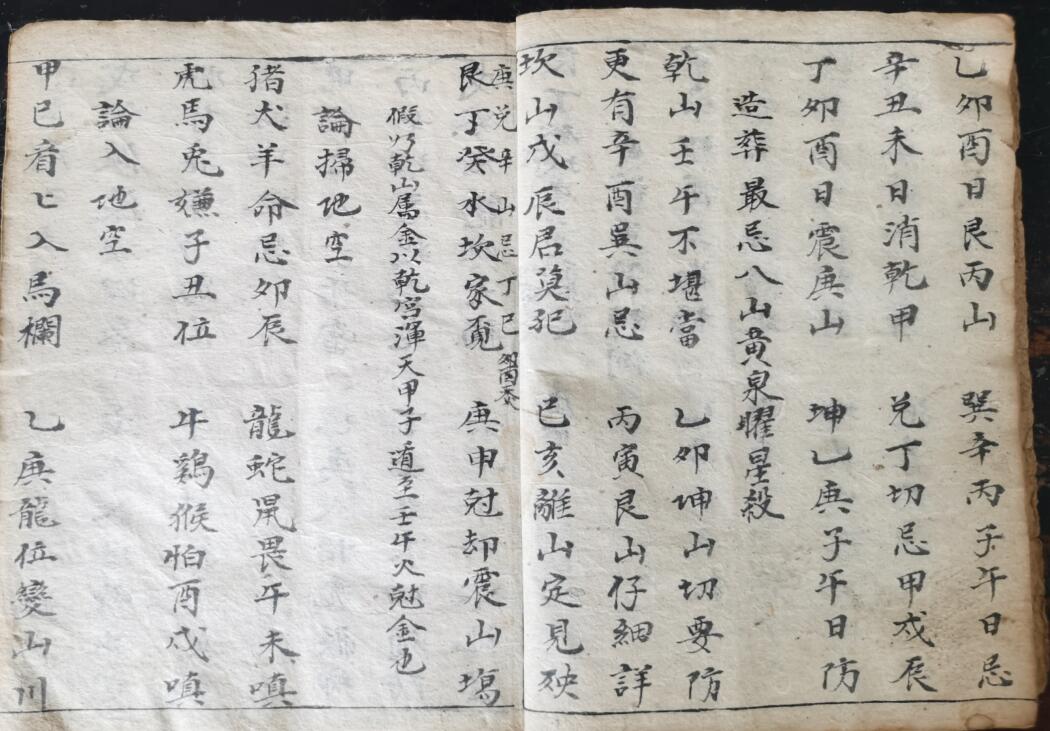 乙卯酉日艮丙山　巽辛丙子午日忌
辛丑未日消乾甲　兑丁切忌甲戌辰
丁卯酉日震庚山　坤乙庚子午日防
造葬最忌八山黄泉曜星殺
乾山壬午不堪當　乙卯坤山切要防
更有辛酉巽山忌　丙寅艮山仔細詳
坎山戊辰君莫犯　己亥離山定見殃
庚兑辛山忌丁巳
艮丁癸水坎家寃　庚申尅却震山塲
假以乾山属金以乾宫渾天甲子遁至壬午火尅金也
論掃地空
猪犬羊命忌卯辰　龍蛇鼠畏午未嗔
虎馬兎嫌子丑位　牛鷄猴怕酉戌嗔
論入地空
甲巳看匕入馬欄　乙庚龍位變山川